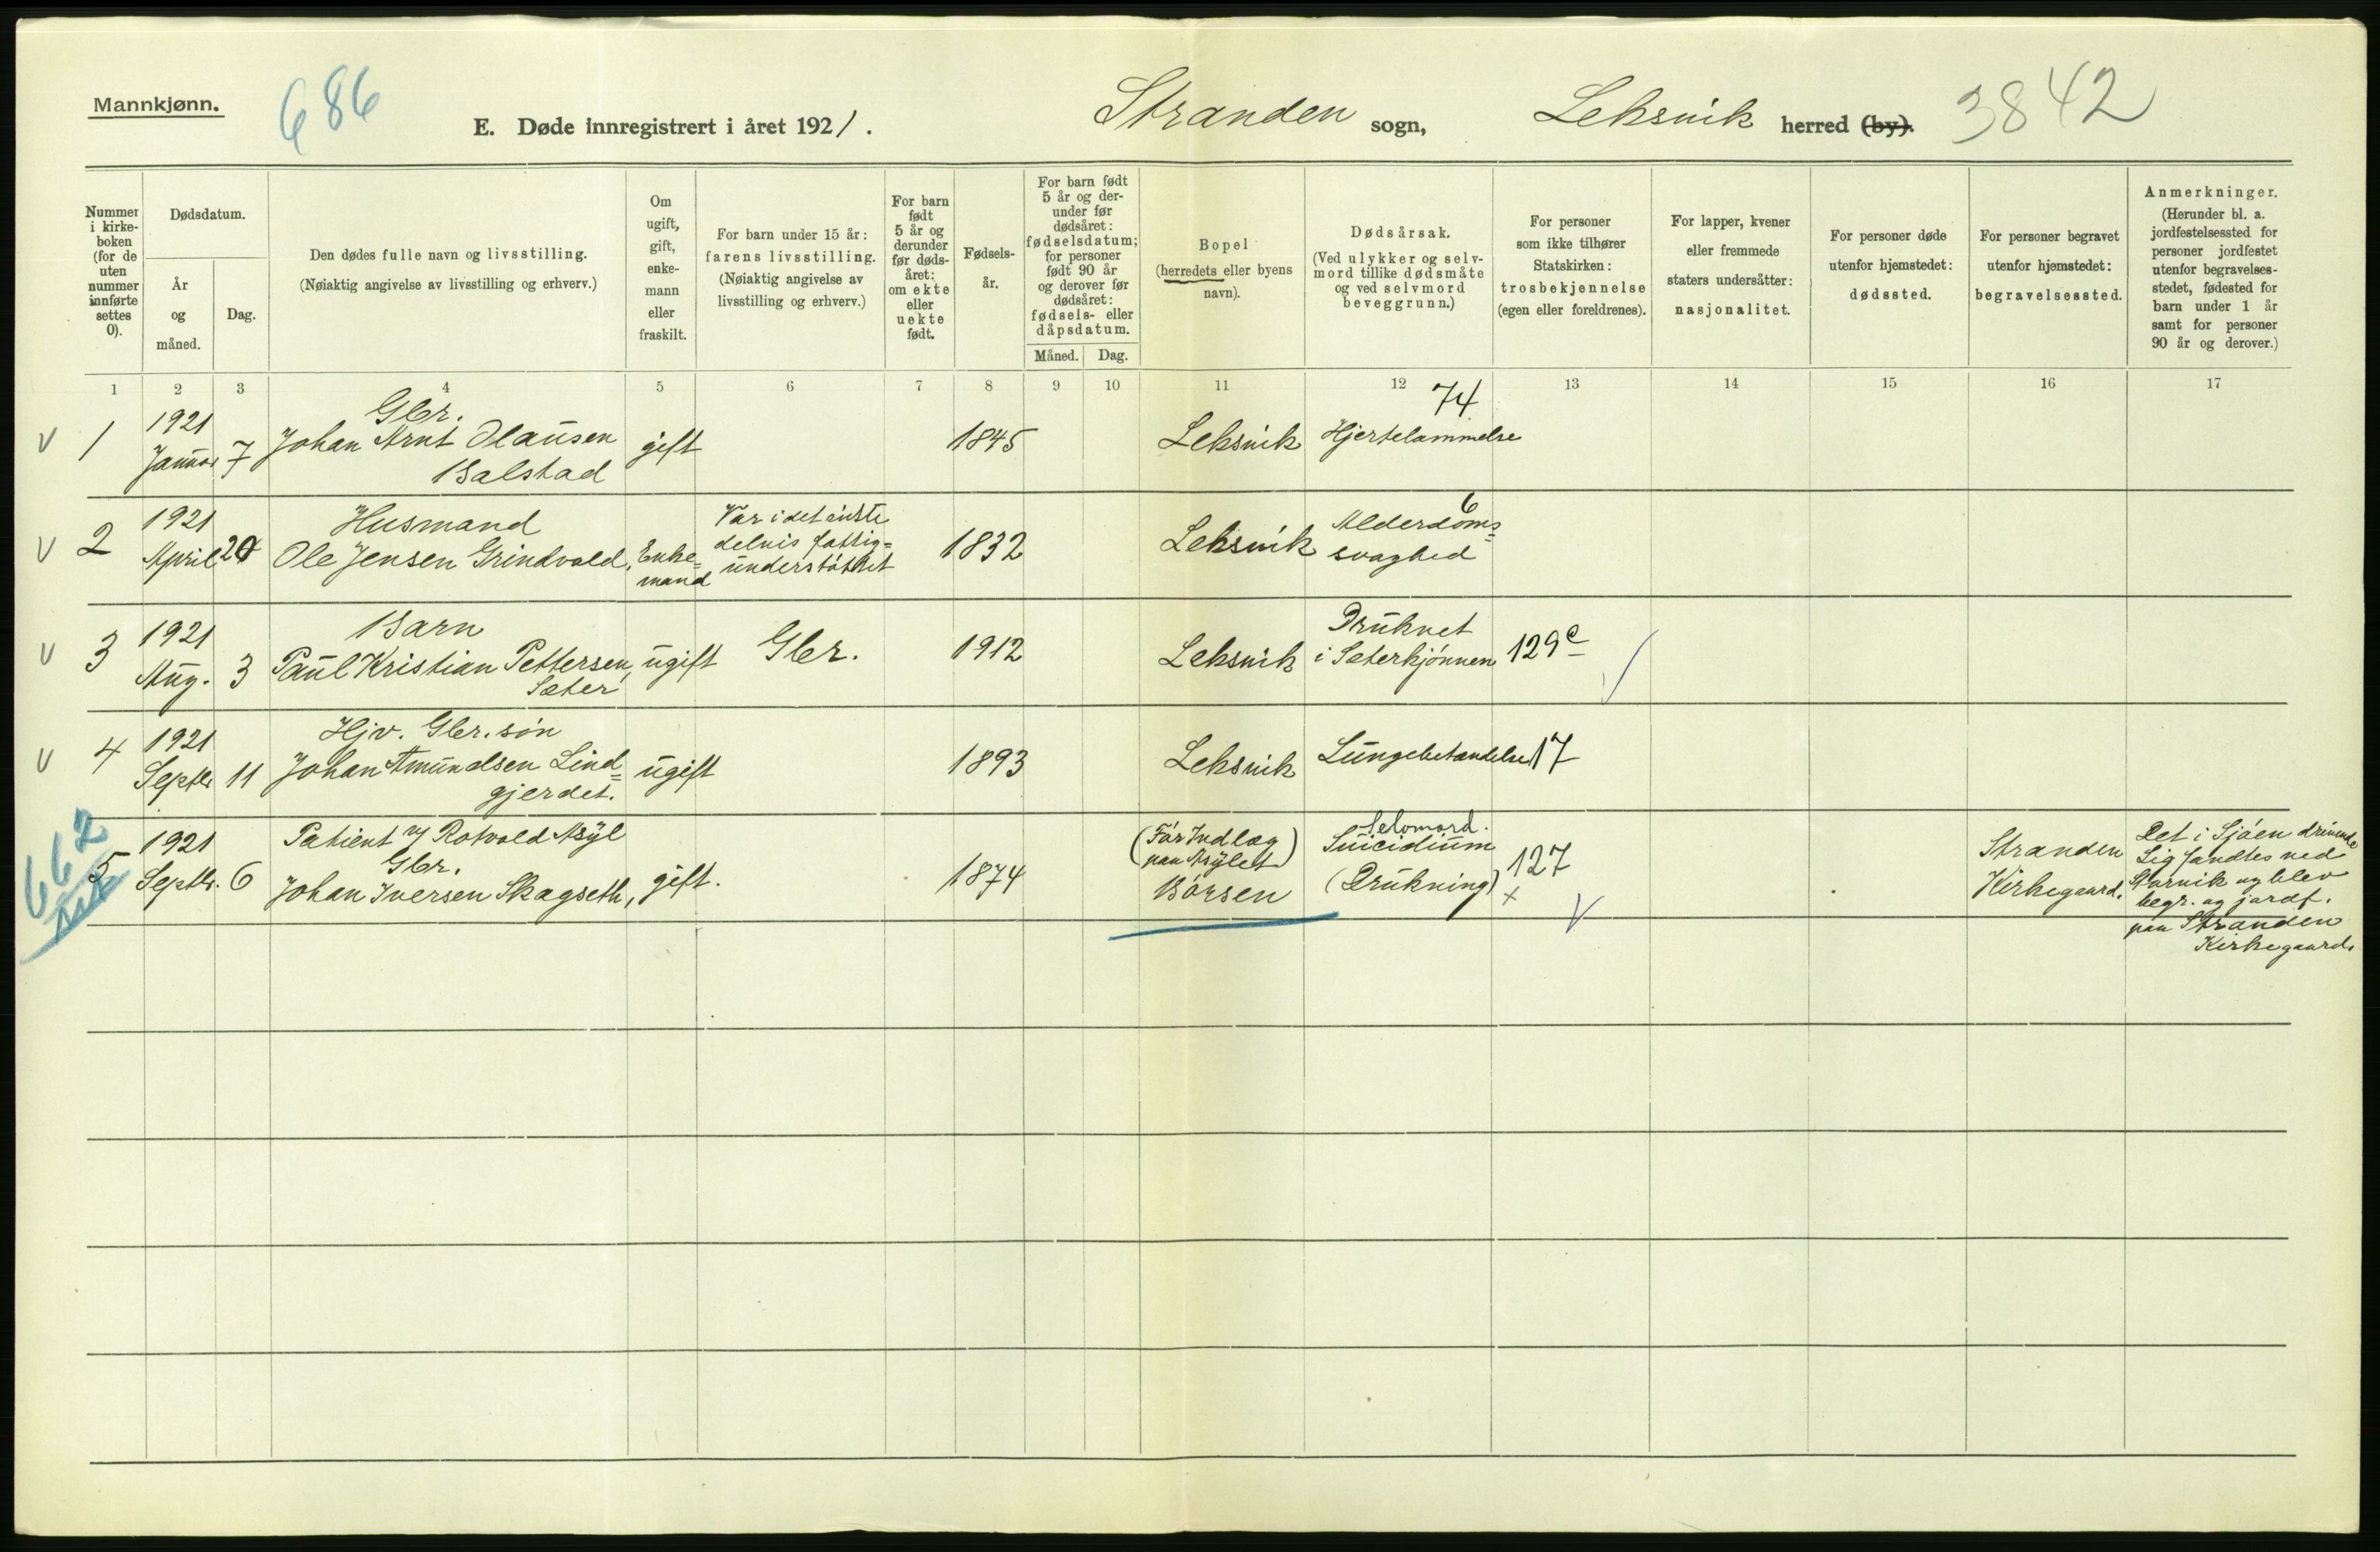 Mannkjønn.
686
E. Døde innregistrert i året 1921.
Stranden sogn,
Leksvik herred (by).
3842
Nummer i kirkeboken (for de uten nummer innførte settes 0).
Dødsdatum.
År og måned.
Dag.
Den dødes fulle navn og livsstilling.
(Nøiaktig angivelse av livsstilling og erhverv.)
Om ugift, gift, enkemann eller fraskilt.
For barn under 15 år: farens livsstilling.
(Nøiaktig angivelse av livsstilling og erhverv.)
For barn født 5 år og derunder før dødsåret: om ekte eller uekte født.
Fødselsår.
For barn født 5 år og derunder før dødsåret: fødselsdatum; for personer født 90 år og derover før dødsåret: fødsels- eller dåpsdatum.
Måned.
Dag.
Bopel
(herredets eller byens navn).
Dødsårsak.
(Ved ulykker og selvmord tillike dødsmåte og ved selvmord beveggrunn.)
For personer som ikke tilhører Statskirken: trosbekjennelse (egen eller foreldrenes).
For lapper, kvener eller fremmede staters undersåtter: nasjonalitet.
For personer døde utenfor hjemstedet: dødssted.
For personer begravet utenfor hjemstedet: begravelsessted.
Anmerkninger.
(Herunder bl. a. jordfestelsessted for personer jordfestet utenfor begravelsesstedet, fødested for barn under 1 år samt for personer 90 år og derover.)
1 2 3 4 5 6 7 8 9 10 11 12 13 14 15 16 17
v 1
1921
Januar 7
Gbr.
Johan Arnt Olausen
Balstad
gift
1845
Leksvik
74
Hjertelammelse
v 2
1921
April 20
Husmand
Ole Jensen Grindvold,
Enke=
mand
Var i det sidste
delvis fattig=
understøttet
1832
Leksvik
6
Alderdoms=
svaghed
v 3
1921
Aug. 3
Barn
Paul Kristian Pettersen,
Sæter
ugift
Gbr.
1912
Leksvik
Druknet
i Sæterkjønnen
129c
v 4
1921
Septbr 11
Hjv. Gbr. søn
Johan Amundsen Lind=
gjerdet.
ugift
1893
Leksvik
Lungebetændelse
17
662
5
1921
Septbr. 6
Patient v/ Rotvold Asyl
Gbr.
Johan Iversen Skagseth,
gift.
1874
(Før Indlæg
paa Asylet)
Børsen
Selvmord.
Suicidium
(Drukning)
127
x
v
Stranden
Kirkegaard.
Det i Sjøen drivende
Lig fandtes ved
Storvik og blev
begr. og jordf.
paa Stranden
Kirkegaard.